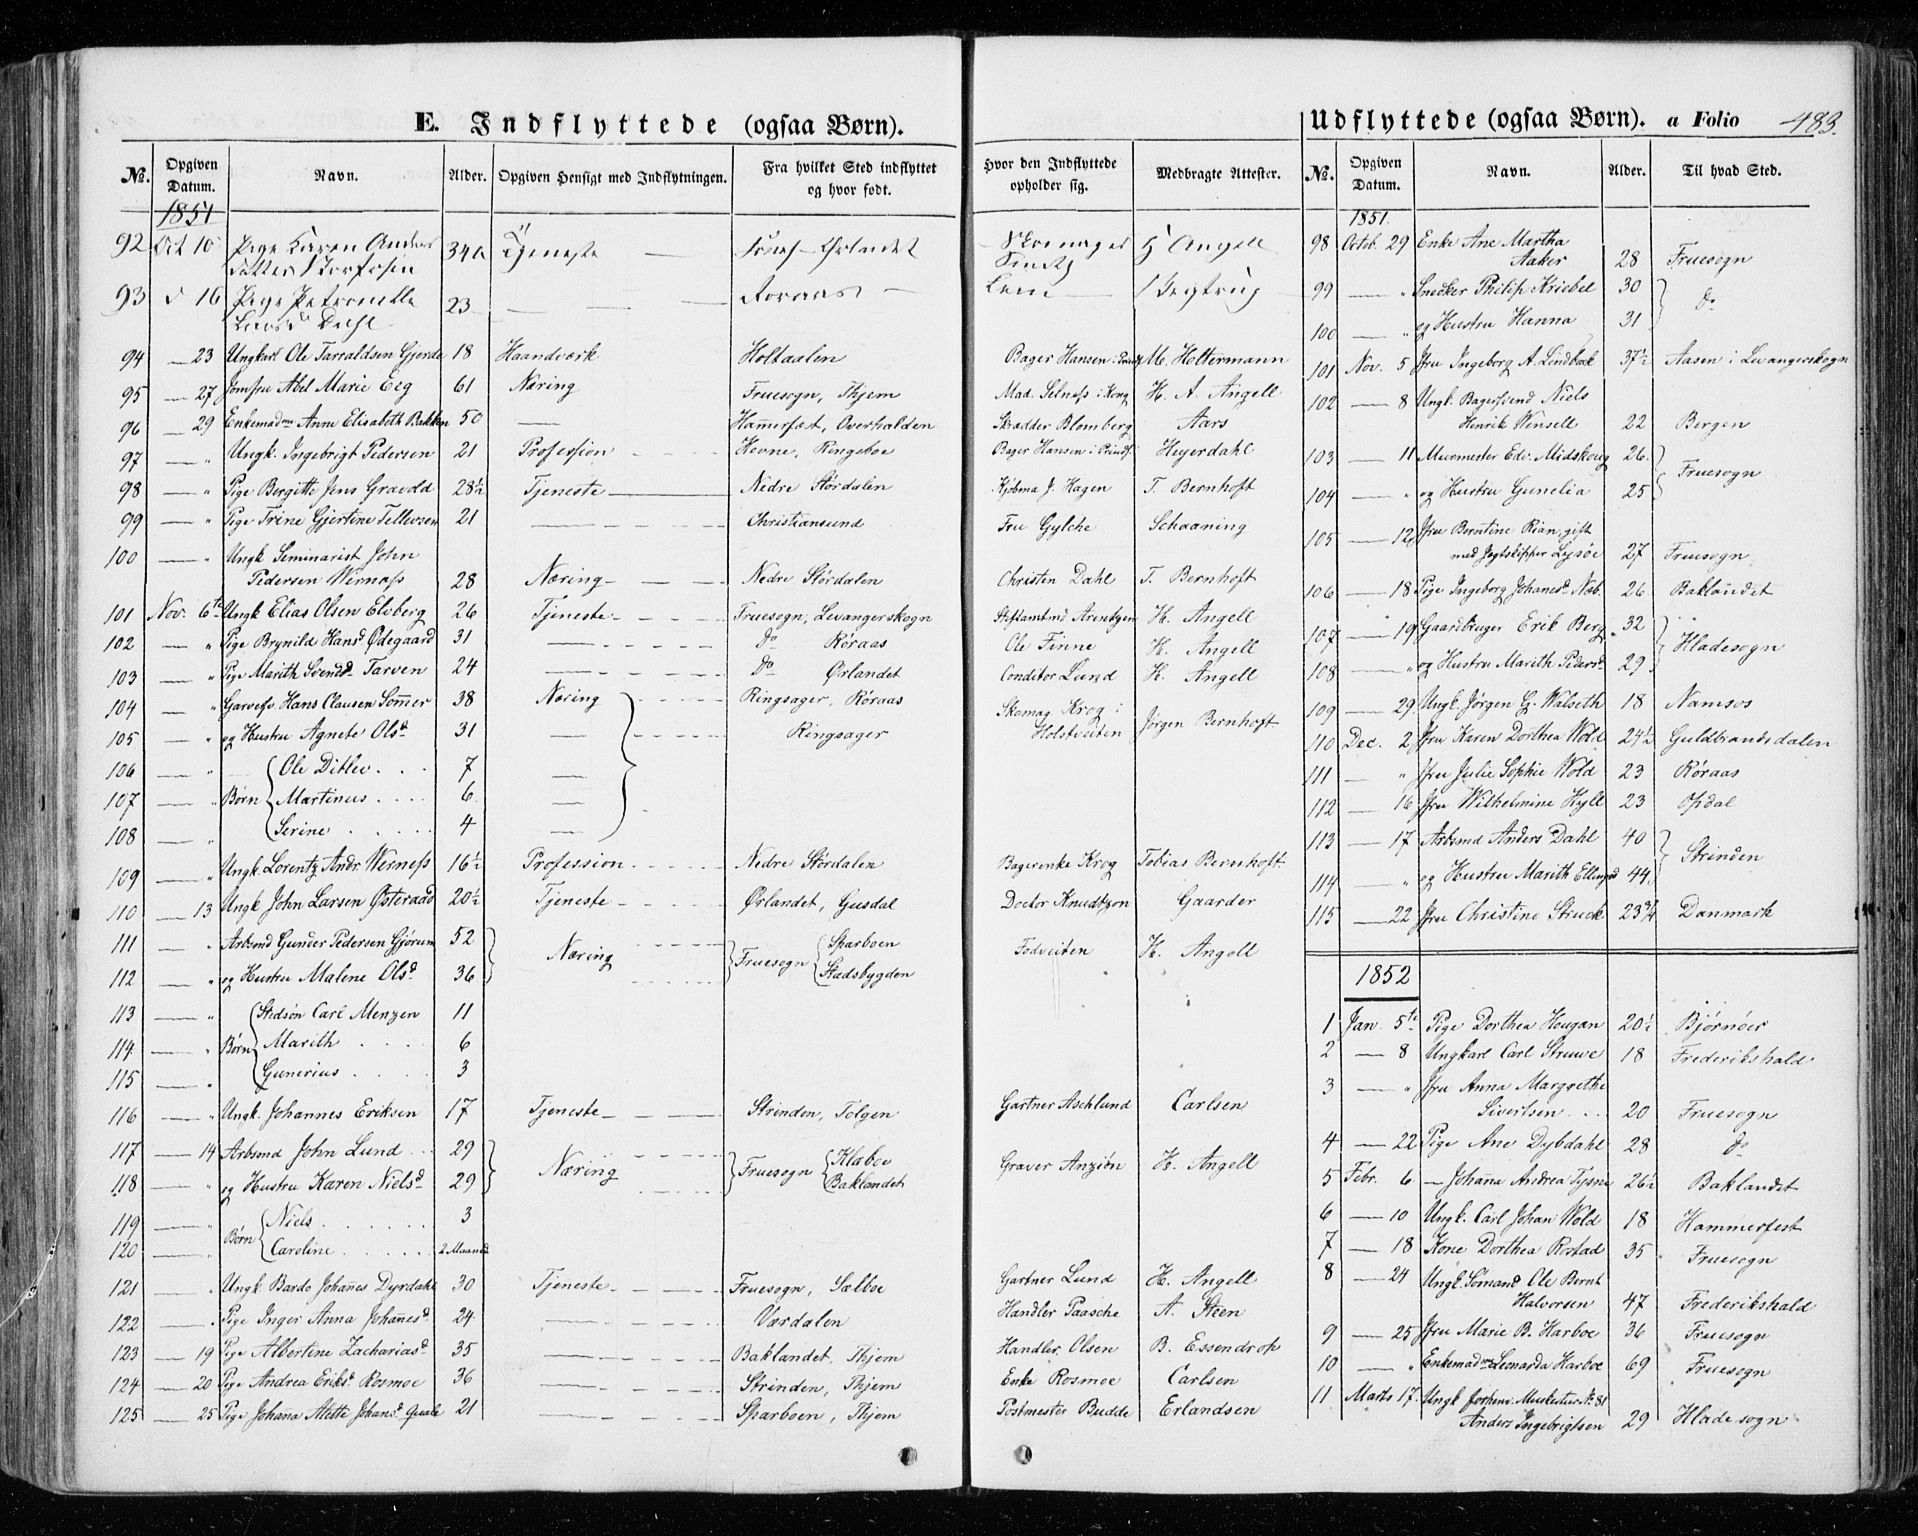 E. Indflyttede (ogsaa Børn).
No. Opgiven Datum. Navn. Alder. Opgiven Hensigt med Indflytningen. Fra hvilket Sted indflyttet og hvor født. Hvor den Indflyttede opholder sig. Medbragte Attester.
1851
92 Oct 10 Pige Karen Anders 34 a Tjeneste Ørlandet Skomager H Angell
93 d 16 Pige Petronelle 23 Roraas Lem
94 — 23 Ungkarl Ole Tarraldsen Gjerde 18 Haandværk Holtaalen Bager Hansen i M. Holtermann
95 — 27 Jomfru Abel Marie Eeg 61 Næring Fruesogn, Thjem Mad. Selnæss i Kong H. A. Angell
96 — 29 Enkemadme Anne Elisabeth Bakken 50 — Hamerfæst, Overhalden Skrædder Blomberg Aars
97 — " Ungk. Ingebrigt Pedersen 21 Profession Hevne, Ringeboe Bager Hansen i Prinds. Heyerdahl
98 — " Pige Bergitte Jens Gravdd 28½ Tjeneste Nedre Størdalen Kjøbma J. Hagen T. Bernhoft
99 — " Pige Trine Gjertine Tellevsen 21 — Christiansund Fru Gylche Schaaning
100 — " Ungk Seminarist John
Pedersen Wernæss 28 Næring Nedre Størdalen Christen Dahl T. Bernhoft
101 Nov. 6te Ungk Elias Olsen Elvberg 26 Tjeneste Fruesogn, Levangerskogn Stiftamtmd Arentzen H. Angell
102 — " Pige Brynild Hansd Ødegaard 31 — do Røraas Ole Finne H. Angell
103 — " Pige Marith Svendsd Tarven 24 — do Ørlandet Conditor Lund H. Angell
104 — " Garvesv. Hans Clausen Sømer 38 Næring Ringsager, Røraas Skomag. Krog i
105 — " og Hustru Agnete Olsd 31 — Ringsager Holstveiten Jørgen Bernhoft
106 — " Ole Ditlev 7 —
107 — " Børn Martinus 6 —
108 — " Serine 4 —
109 — " Ungk. Lorentz Andr. Wernæss 16½ Profession Nedre Størdalen Bagerenke Krog Tobias Bernhoft
110 — 13 Ungk John Larsen Østeraad 20½ Tjeneste Ørlandet, Gusdal Doctor Knudtzon Gaarder
111 — " Arbsmd Gunder Pedersen Gjørum 52 Næring Fruesogn Sparboen Fodveiten H. Angell
112 — " og Hustru Malene Olsd 36 Stadsbygden
113 — " Stedsøn Carl Menzen 11
114 — " Børn Marith 6
115 — " Gunerius 3
116 — " Ungk. Johannes Eriksen 17 Tjeneste Strinden, Tolgen Gartner Aschlund Carlsen
117 — 14 Arbsmd John Lund 29 Næring Fruesogn Klæboe Graver Anziøn H. Angell
118 — " og Hustru Karen Nielsd 29 Baklandet
119 — " Børn Niels 3
120 — " Caroline 2 Maaned
121 — " Ungk Bardo Johañes Dyrdahl 30 Tjeneste Fruesogn, Sælboe Gartner Lund H. Angell
122 — " Pige Inger Anna Johañesd 24 — Værdalen Handler Paasche A. Steen
123 — 19 Pige Albertine Zachariasd 35 — Baklandet, Thjem Handler. Olsen B. Essendrop
124 — 20 Pige Andrea Eriksd Rosmoe 36 — Strinden, Thjem Enke Rosmoe Carlsen
125 — 25 Pige Johaña Alette Johansd Quale 21 — Sparboen, Thjem Postmester Budde Erlandsen
Udflyttede (ogsaa Børn). a Folio 483.
No. Opgiven Datum. Navn. Alder. Til hvad Sted.
1851.
98 Octob. 29 Enke Ane Martha
Aaker 28 Fruesogn
99 — " Snedker Philip Kriebel 30 do
100 — " og Hustru Hanna 31
101 Nov. 5 Jfru Ingeborg A. Lindbak 37½ Aasen i Levangerskogn
102 — 8 Ungk. Bagersvend Niels
Henrik Wensell 22 Bergen
103 — 11 Murmester Edv. Midskoug 26 Fruesogn
104 — " og Hustru Gunelia 25
105 — 12 Jfru Berntine Rian, gift
med Jegtskipper Lysøe 27 Fruesogn
106 — 18 Pige Ingeborg Johanesd Næb. 26 Baklandet
107 — 19 Gaardbruger Erik Berg 32 Hladesogn
108 — " og Hustru Marith Pedersd 29
109 — 29 Ungk. Jørgen G. Walseth 18 Namsos
110 Dec. 2 Jfru Karen Dorthea Wold 24½ Guldbrandsdalen
111 — " Jfru Julie Sophie Wold 23 Røraas
112 — 16 Jfru Wilhelmine Hyll 23 Opdal
113 — 17 Arbsmd Anders Dahl 40 Strinden
114 — " og Hustru Marith Ellingsd 44
115 — 22 Jfru Christine Struck 23¾ Danmark
1852
1 Jan. 5te Pige Dorthea Hougan 20½ Bjørnøer
2 — 8 Ungkarl Carl Struwe 18 Frederikshald
3 — " Jfru Anna Margrethe
Sivertsen 20 Fruesogn
4 — 22 Pige Ane Dybdahl 28 do
5 Febr. 6 — Johaña Andrea Tysne 26½ Baklandet
6 — 10 Ungk. Carl Johan Wold 18 Hammerfest
7 — 18 Kone Dorthea Rostad 35 Fruesogn
8 — 24 Ungk. Sømand Ole Bernt
Halvorsen 47 Frederikshald
9 — 25 Jfru Marie B. Harboe 36 Fruesogn
10 — " Enkemadme Leonarda Harboe 69 Fruesogn
11 Marts 17. Ungk Musketeer No 81
Anders Ingebrigtsen 29 Hladesogn